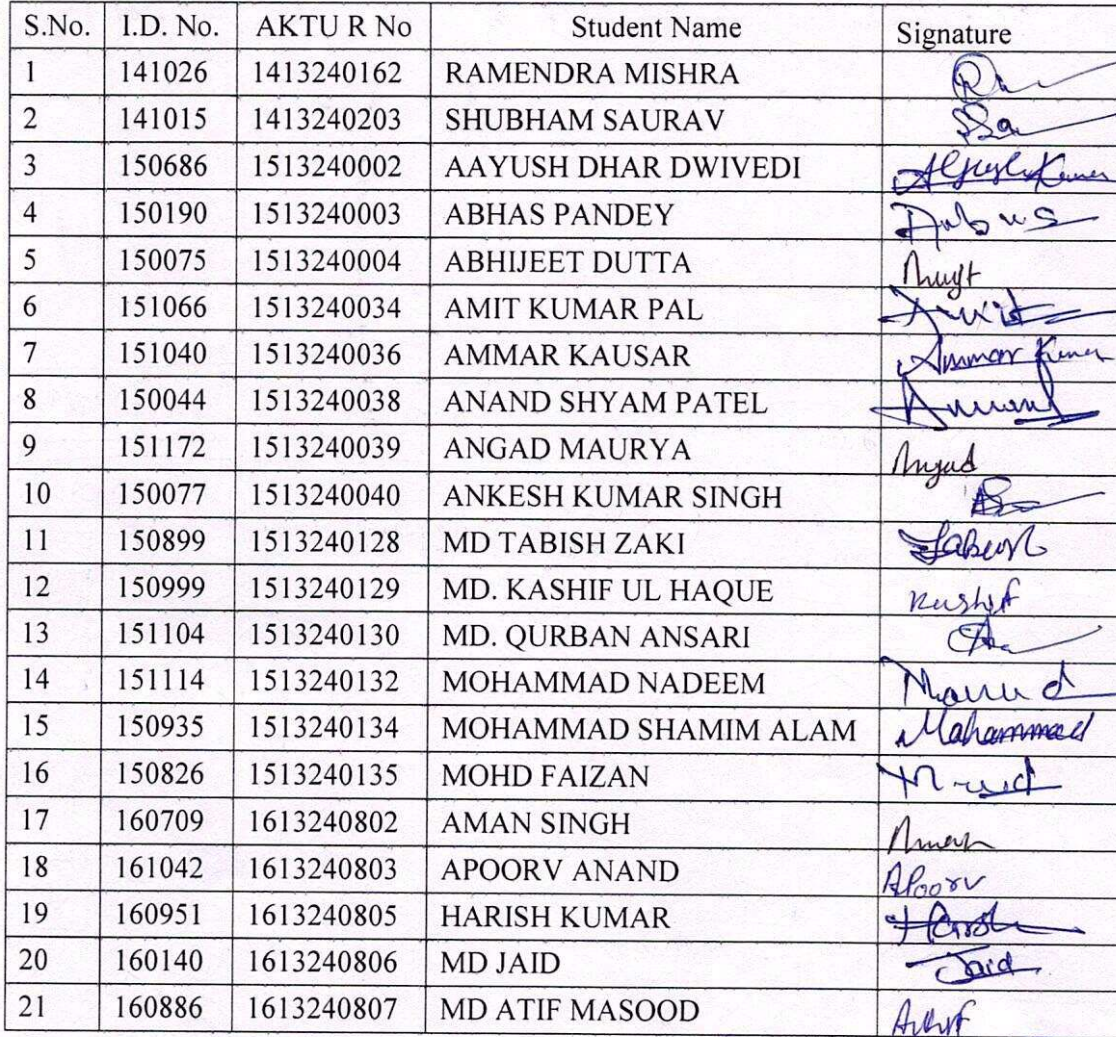 S.No. I.D. No. AKTU R No Student Name Signature
1 141026 1413240162 RAMENDRA MISHRA
2 141015 1413240203 SHUBHAM SAURAV
3 150686 1513240002 AAYUSH DHAR DWIVEDI
4 150190 1513240003 ABHAS PANDEY
5 150075 1513240004 ABHIJEET DUTTA
6 151066 1513240034 AMIT KUMAR PAL
7 151040 1513240036 AMMAR KAUSAR Ammar
8 150044 1513240038 ANAND SHYAM PATEL
9 151172 1513240039 ANGAD MAURYA Angad
10 150077 1513240040 ANKESH KUMAR SINGH
11 150899 1513240128 MD TABISH ZAKI
12 150999 1513240129 MD. KASHIF UL HAQUE
13 151104 1513240130 MD. QURBAN ANSARI
14 151114 1513240132 MOHAMMAD NADEEM
15 150935 1513240134 MOHAMMAD SHAMIM ALAM Mohammad
16 150826 1513240135 MOHD FAIZAN
17 160709 1613240802 AMAN SINGH
18 161042 1613240803 APOORV ANAND Apoorv
19 160951 1613240805 HARISH KUMAR
20 160140 1613240806 MD JAID Jaid
21 160886 1613240807 MD ATIF MASOOD